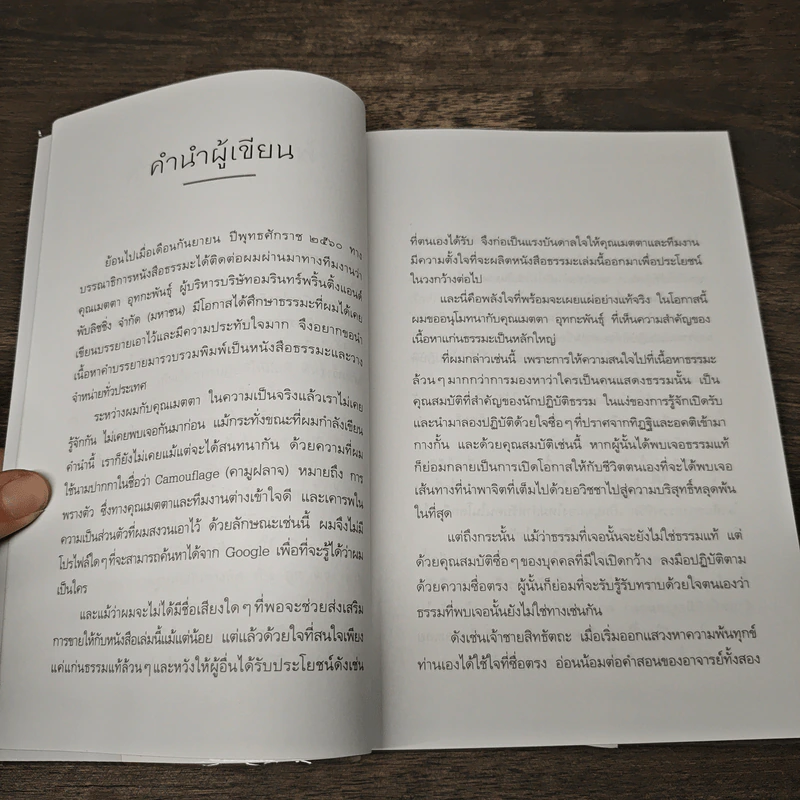 คำนำผู้เขียน
ย้อนไปเมื่อเดือนกันยายน ปีพุทธศักราช ๒๕๖๐ ทาง
บรรณาธิการหนังสือธรรมะได้ติดต่อผมผ่านมาทางทีมงานว่า
คุณเมตตา อุทกะพันธุ์ ผู้บริหารบริษัทอมรินทร์พริ้นติ้งแอนด์
พับลิชชิ่ง จำกัด (มหาชน) มีโอกาสได้ศึกษาธรรมะที่ผมได้เคย
เขียนบรรยายเอาไว้และมีความประทับใจมาก จึงอยากขอนำ
เนื้อหาคำบรรยายมารวบรวมพิมพ์เป็นหนังสือธรรมะและวาง
จำหน่ายทั่วประเทศ
ระหว่างผมกับคุณเมตตา ในความเป็นจริงแล้วเราไม่เคย
รู้จักกัน ไม่เคยพบเจอกันมาก่อน แม้กระทั่งขณะที่ผมกำลังเขียน
คำนำนี้ เราก็ยังไม่เคยแม้แต่จะได้สนทนากัน ด้วยความที่ผม
ใช้นามปากกาในชื่อว่า Camouflage (คามูฝลาจ) หมายถึง การ
พรางตัว ซึ่งทางคุณเมตตาและทีมงานต่างเข้าใจดี และเคารพใน
ความเป็นส่วนตัวที่ผมสงวนเอาไว้ ด้วยลักษณะเช่นนี้ ผมจึงไม่มี
โปรไฟล์ใดๆ ที่จะสามารถค้นหาได้จาก Google เพื่อที่จะรู้ได้ว่าผม
เป็นใคร
และแม้ว่าผมจะไม่ได้มีชื่อเสียงใดๆ ที่พอจะช่วยส่งเสริม
การขายให้กับหนังสือเล่มนี้แม้แต่น้อย แต่แล้วด้วยใจที่สนใจเพียง
แค่แก่นธรรมแท้ล้วนๆ และหวังให้ผู้อื่นได้รับประโยชน์ดังเช่น
ที่ตนเองได้รับ จึงก่อเป็นแรงบันดาลใจให้คุณเมตตาและทีมงาน
มีความตั้งใจที่จะผลิตหนังสือธรรมะเล่มนี้ออกมาเพื่อประโยชน์
ในวงกว้างต่อไป
และนี่คือพลังใจที่พร้อมจะเผยแผ่อย่างแท้จริง ในโอกาสนี้
ผมขออนุโมทนากับคุณเมตตา อุทกะพันธุ์ ที่เห็นความสำคัญของ
เนื้อหาแก่นธรรมะเป็นหลักใหญ่
ที่ผมกล่าวเช่นนี้ เพราะการให้ความสนใจไปที่เนื้อหาธรรมะ
ล้วนๆ มากกว่าการมองหาว่าใครเป็นคนแสดงธรรมนั้น เป็น
คุณสมบัติที่สำคัญของนักปฏิบัติธรรม ในแง่ของการรู้จักเปิดรับ
และนำมาลองปฏิบัติด้วยใจซื่อๆ ที่ปราศจากทิฏฐิและอคติเข้ามา
กางกั้น และด้วยคุณสมบัติเช่นนี้ หากผู้นั้นได้พบเจอธรรมแท้
ก็ย่อมกลายเป็นการเปิดโอกาสให้กับชีวิตตนเองที่จะได้พบเจอ
เส้นทางที่นำพาจิตที่เต็มไปด้วยอวิชชาไปสู่ความบริสุทธิ์หลุดพ้น
ในที่สุด
แต่ถึงกระนั้น แม้ว่าธรรมที่เจอนั้นจะยังไม่ใช่ธรรมแท้ แต่
ด้วยคุณสมบัติซื่อๆ ของบุคคลที่มีใจเปิดกว้าง ลงมือปฏิบัติตาม
ด้วยความซื่อตรง ผู้นั้นก็ย่อมที่จะรับรู้รับทราบด้วยใจตนเองว่า
ธรรมที่พบเจอนั้นยังไม่ใช่ทางเช่นกัน
ดังเช่นเจ้าชายสิทธัตถะ เมื่อเริ่มออกแสวงหาความพ้นทุกข์
ท่านเองได้ใช้ใจที่ซื่อตรง อ่อนน้อมต่อคำสอนของอาจารย์ทั้งสอง